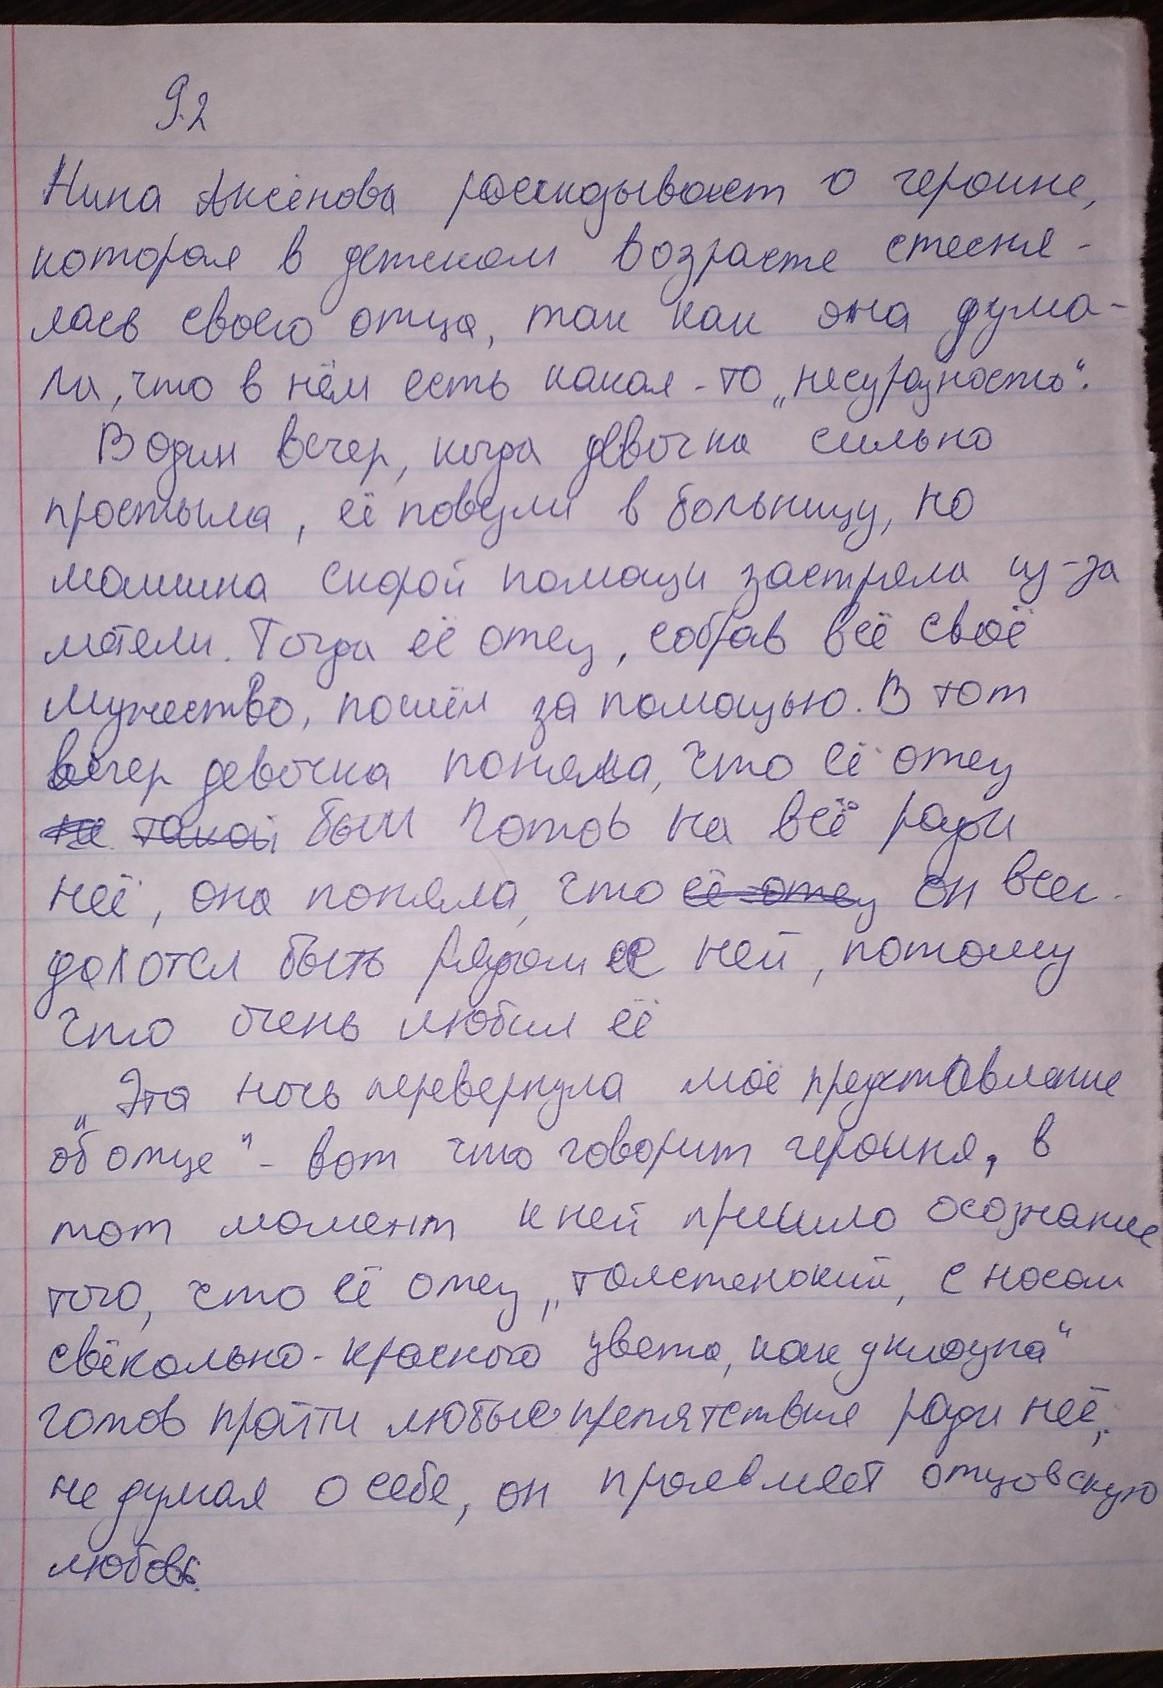 9.2
Нина Аксёнова рассказывает о героине,
которая в детском возрасте стесня-
лась своего отца, так как она дума-
ла, что в нём есть какая-то „несуразность“.
В один вечер, когда девочка сильно
простыла, её повезли в больницу, но
машина скорой помощи застряла из-за
метели. Тогда её отец, собрав всё своё
мужество, пошёл за помощью. В тот
вечер девочка поняла, что её отец
не такой был готов на всё ради
неё, она поняла, что её отец он всег-
да хотел быть рядом с ней, потому
что очень любил её
„Эта ночь перевернула моё представление
об отце“ - вот что говорит героиня, в
тот момент к ней пришло осознание
того, что её отец „толстенький, с носом
свёкольно-красного цвета, как у клоуна“
готов пройти любые препятствия ради неё,
не думая о себе, он проявляет отцовскую
любовь.